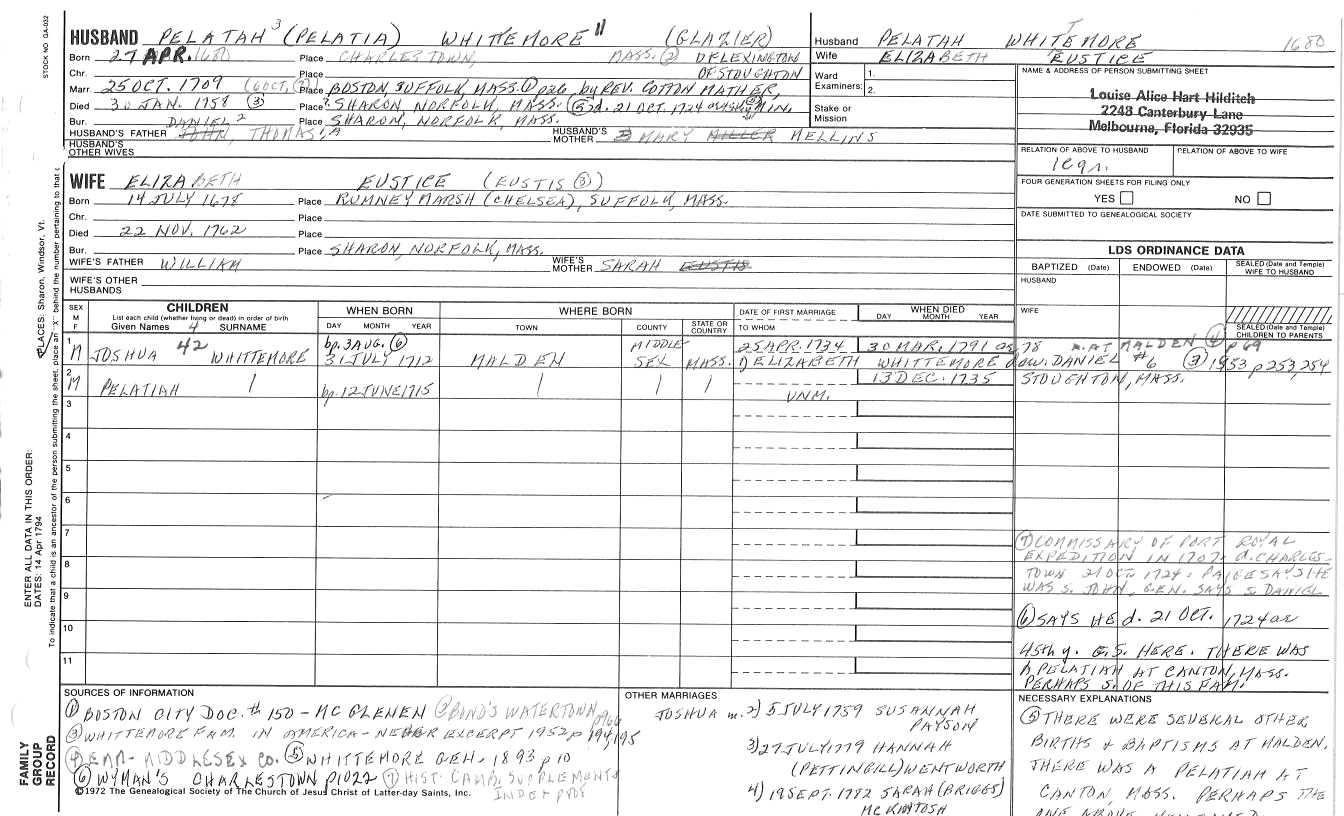 STOCK NO. GA-032
HUSBAND PELATAH 3 (PELATIA) WHITTEMORE 11 (GLAZIER)
Born 27 APR. 1680 Place CHARLESTOWN, MASS. (2) OF LEXINGTON
Chr. Place OF STOUGHTON
Marr. 25 OCT. 1709 (6 OCT. Place BOSTON, SUFFOLK, MASS. (1) p26 by REV. COTTON MATHER,
Died 30 JAN. 1758 (3) Place ? SHARON, NORFOLK, MASS. (5) d. 21 OCT. 1724 MIN.
Bur. Place SHARON, NORFOLK, MASS.
DANIEL 2
HUSBAND'S FATHER JOHN, THOMAS 1A HUSBAND'S MOTHER MARY MILLER MELLINS
HUSBAND'S OTHER WIVES
WIFE ELIZABETH EUSTICE (EUSTIS (3))
Born 14 JULY 1678 Place RUMNEY MARSH (CHELSEA), SUFFOLK, MASS.
Chr. Place
Died 22 NOV. 1762 Place
Bur. Place SHARON, NORFOLK, MASS.
WIFE'S FATHER WILLIAM WIFE'S MOTHER SARAH EUSTIS
WIFE'S OTHER HUSBANDS
Husband PELATAH WHITEMORE T 1680
Wife ELIZABETH EUSTICE
Ward Examiners: 1.
2.
Stake or Mission
NAME & ADDRESS OF PERSON SUBMITTING SHEET
Louise Alice Hart Hilditch
2248 Canterbury Lane
Melbourne, Florida 32935
RELATION OF ABOVE TO HUSBAND RELATION OF ABOVE TO WIFE
FOUR GENERATION SHEETS FOR FILING ONLY
YES NO
DATE SUBMITTED TO GENEALOGICAL SOCIETY
LDS ORDINANCE DATA
BAPTIZED (Date) ENDOWED (Date) SEALED (Date and Temple) WIFE TO HUSBAND
HUSBAND
WIFE
SEALED (Date and Temple) CHILDREN TO PARENTS
SEX M F
CHILDREN
List each child (whether living or dead) in order of birth
Given Names SURNAME
WHEN BORN
DAY MONTH YEAR
WHERE BORN
TOWN COUNTY STATE OR COUNTRY
DATE OF FIRST MARRIAGE
TO WHOM
WHEN DIED
DAY MONTH YEAR
1 M JOSHUA 42 WHITTEMORE bp. 3 AUG. (6) 31 JULY 1712 MALDEN MIDDLESEX MASS. 25 APR. 1734 30 MAR. 1791 ae 78 AT MALDEN (4) p 69
ELIZABETH WHITTEMORE dau. DANIEL #6 (3) 1953 p 253, 254
2 M PELATIAH bp. 12 JUNE 1715 UNM. 13 DEC. 1735 STOUGHTON, MASS.
3
4
5
6
7
8
9
10
11
(7) COMMISSARY OF PORT ROYAL
EXPEDITION IN 1707. d. CHARLES-
TOWN 21 OCT. 1724. PAIGE SAYS HE
WAS S. JOHN, GEN. SAYS S DANIEL
(6) SAYS HE d. 21 OCT. 1724 ae
45th y. G.S. HERE. THERE WAS
A PELATIAH AT CANTON, MASS.
PERHAPS S. OF THIS FAM.
ENTER ALL DATA IN THIS ORDER:
DATES: 14 Apr 1794
PLACES: Sharon, Windsor, Vt.
To indicate that a child is an ancestor of the person submitting the sheet, place an "X" behind the number pertaining to that
FAMILY GROUP RECORD
SOURCES OF INFORMATION
(1) BOSTON CITY DOC. #150 - MC GLENEN (2) BOND'S WATERTOWN p966
(3) WHITTEMORE FAM. IN AMERICA - NEHGR EXCERPT 1952 p 194, 195
MIDDLESEX CO. (5) WHITTEMORE GEN. 1893 p 10
(6) WYMAN'S CHARLESTOWN p1022 (7) HIST. CAMB. SUPPLEMENT
INDEX
©1972 The Genealogical Society of The Church of Jesus Christ of Latter-day Saints, Inc.
OTHER MARRIAGES
JOSHUA m. 2) 5 JULY 1759 SUSANNAH
PAYSON
3) 27 JULY 1779 HANNAH
(PETTINGILL) WENTWORTH
4) 19 SEPT. 1782 SARAH (BRIGGS)
MC KINTOSH
NECESSARY EXPLANATIONS
(5) THERE WERE SEVERAL OTHER
BIRTHS & BAPTISMS AT MALDEN.
THERE WAS A PELATIAH AT
CANTON, MASS. PERHAPS THE